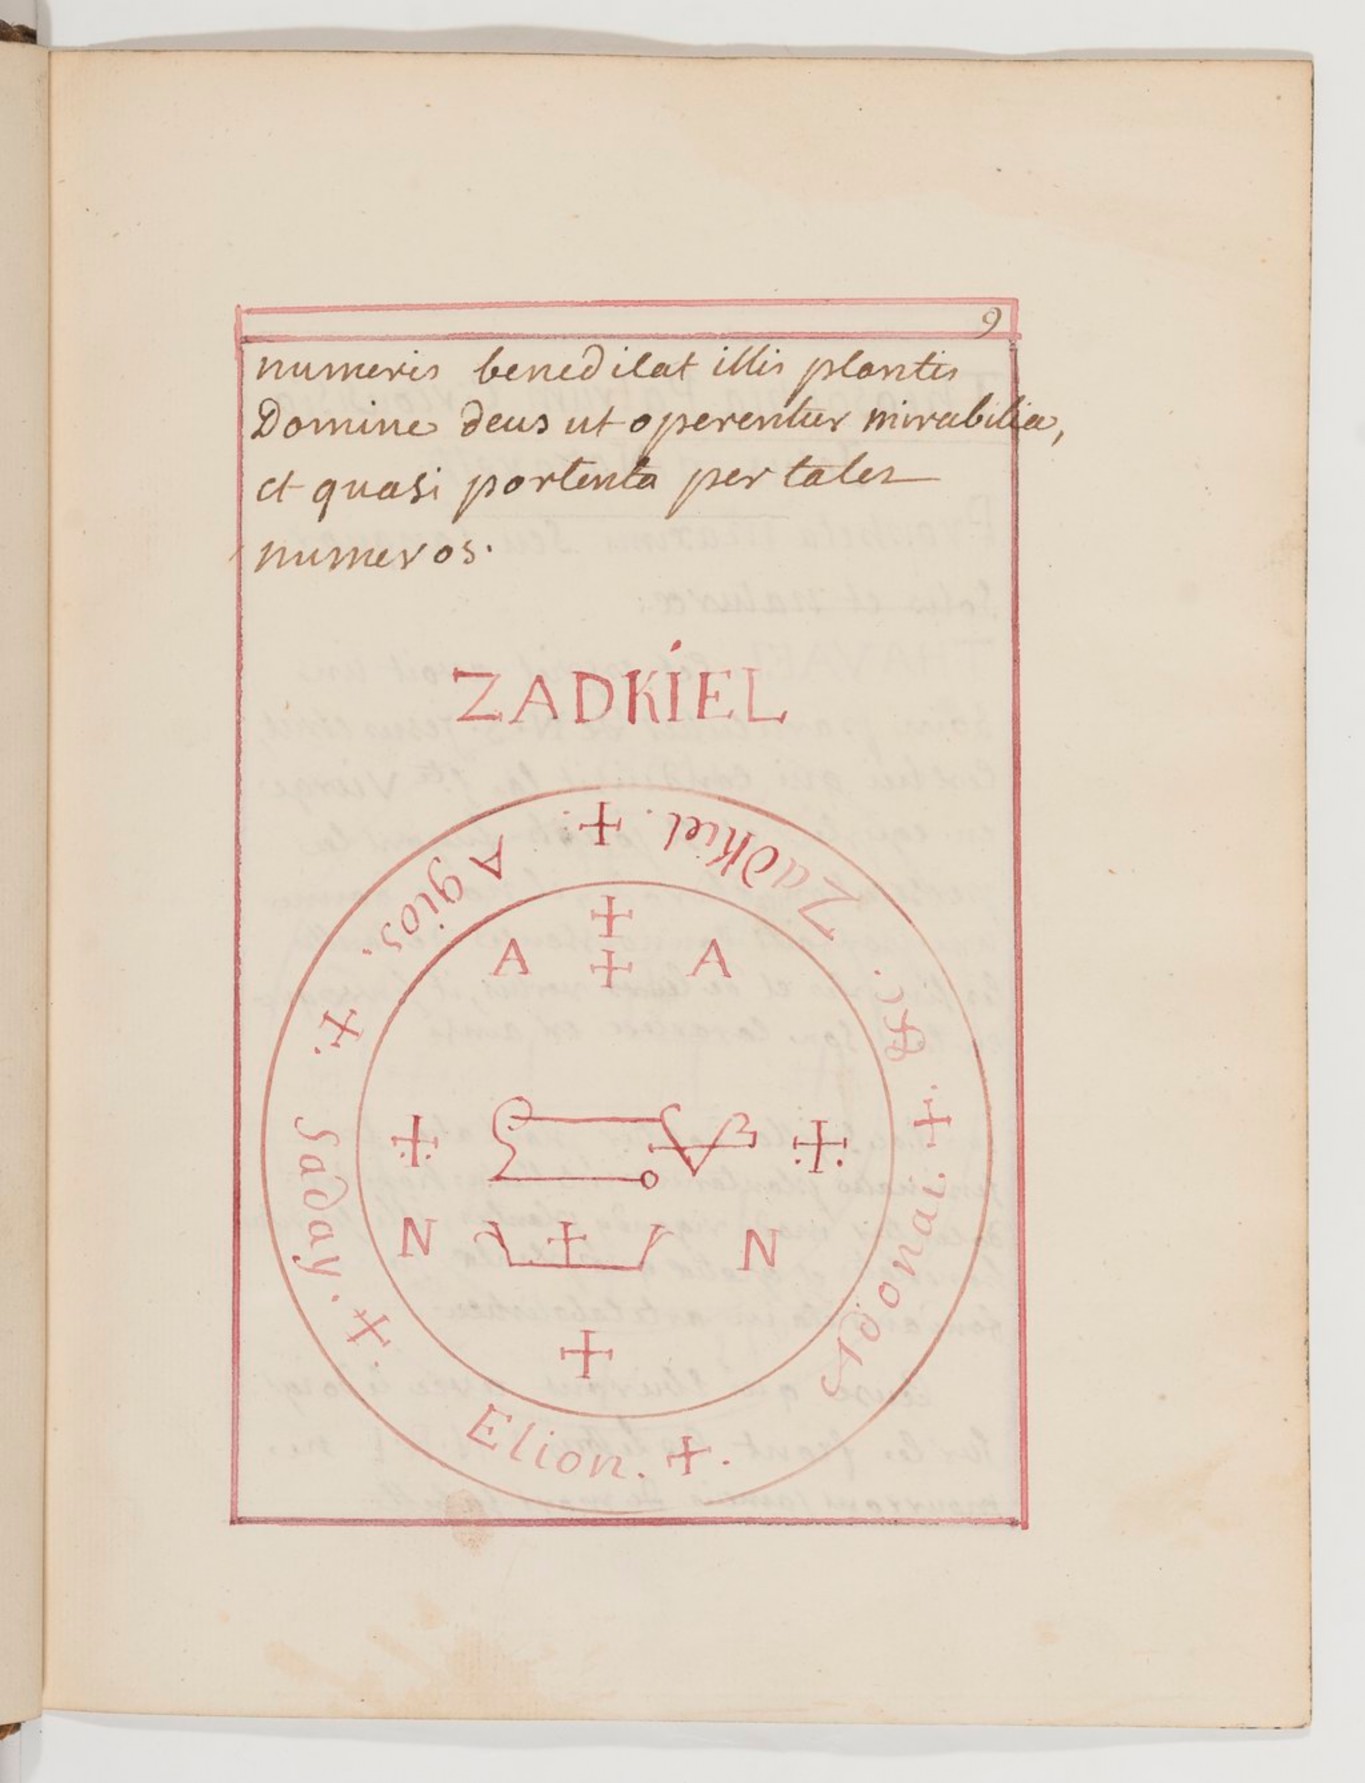 9
numeris benedilat illis plantis
Domine deus ut operentur mirabilia,
et quasi portenta per tales
numeros.
ZADKÍEL
Agios.
Zadkiel.
Adonai.
Elion.
Saday.
A A
N N